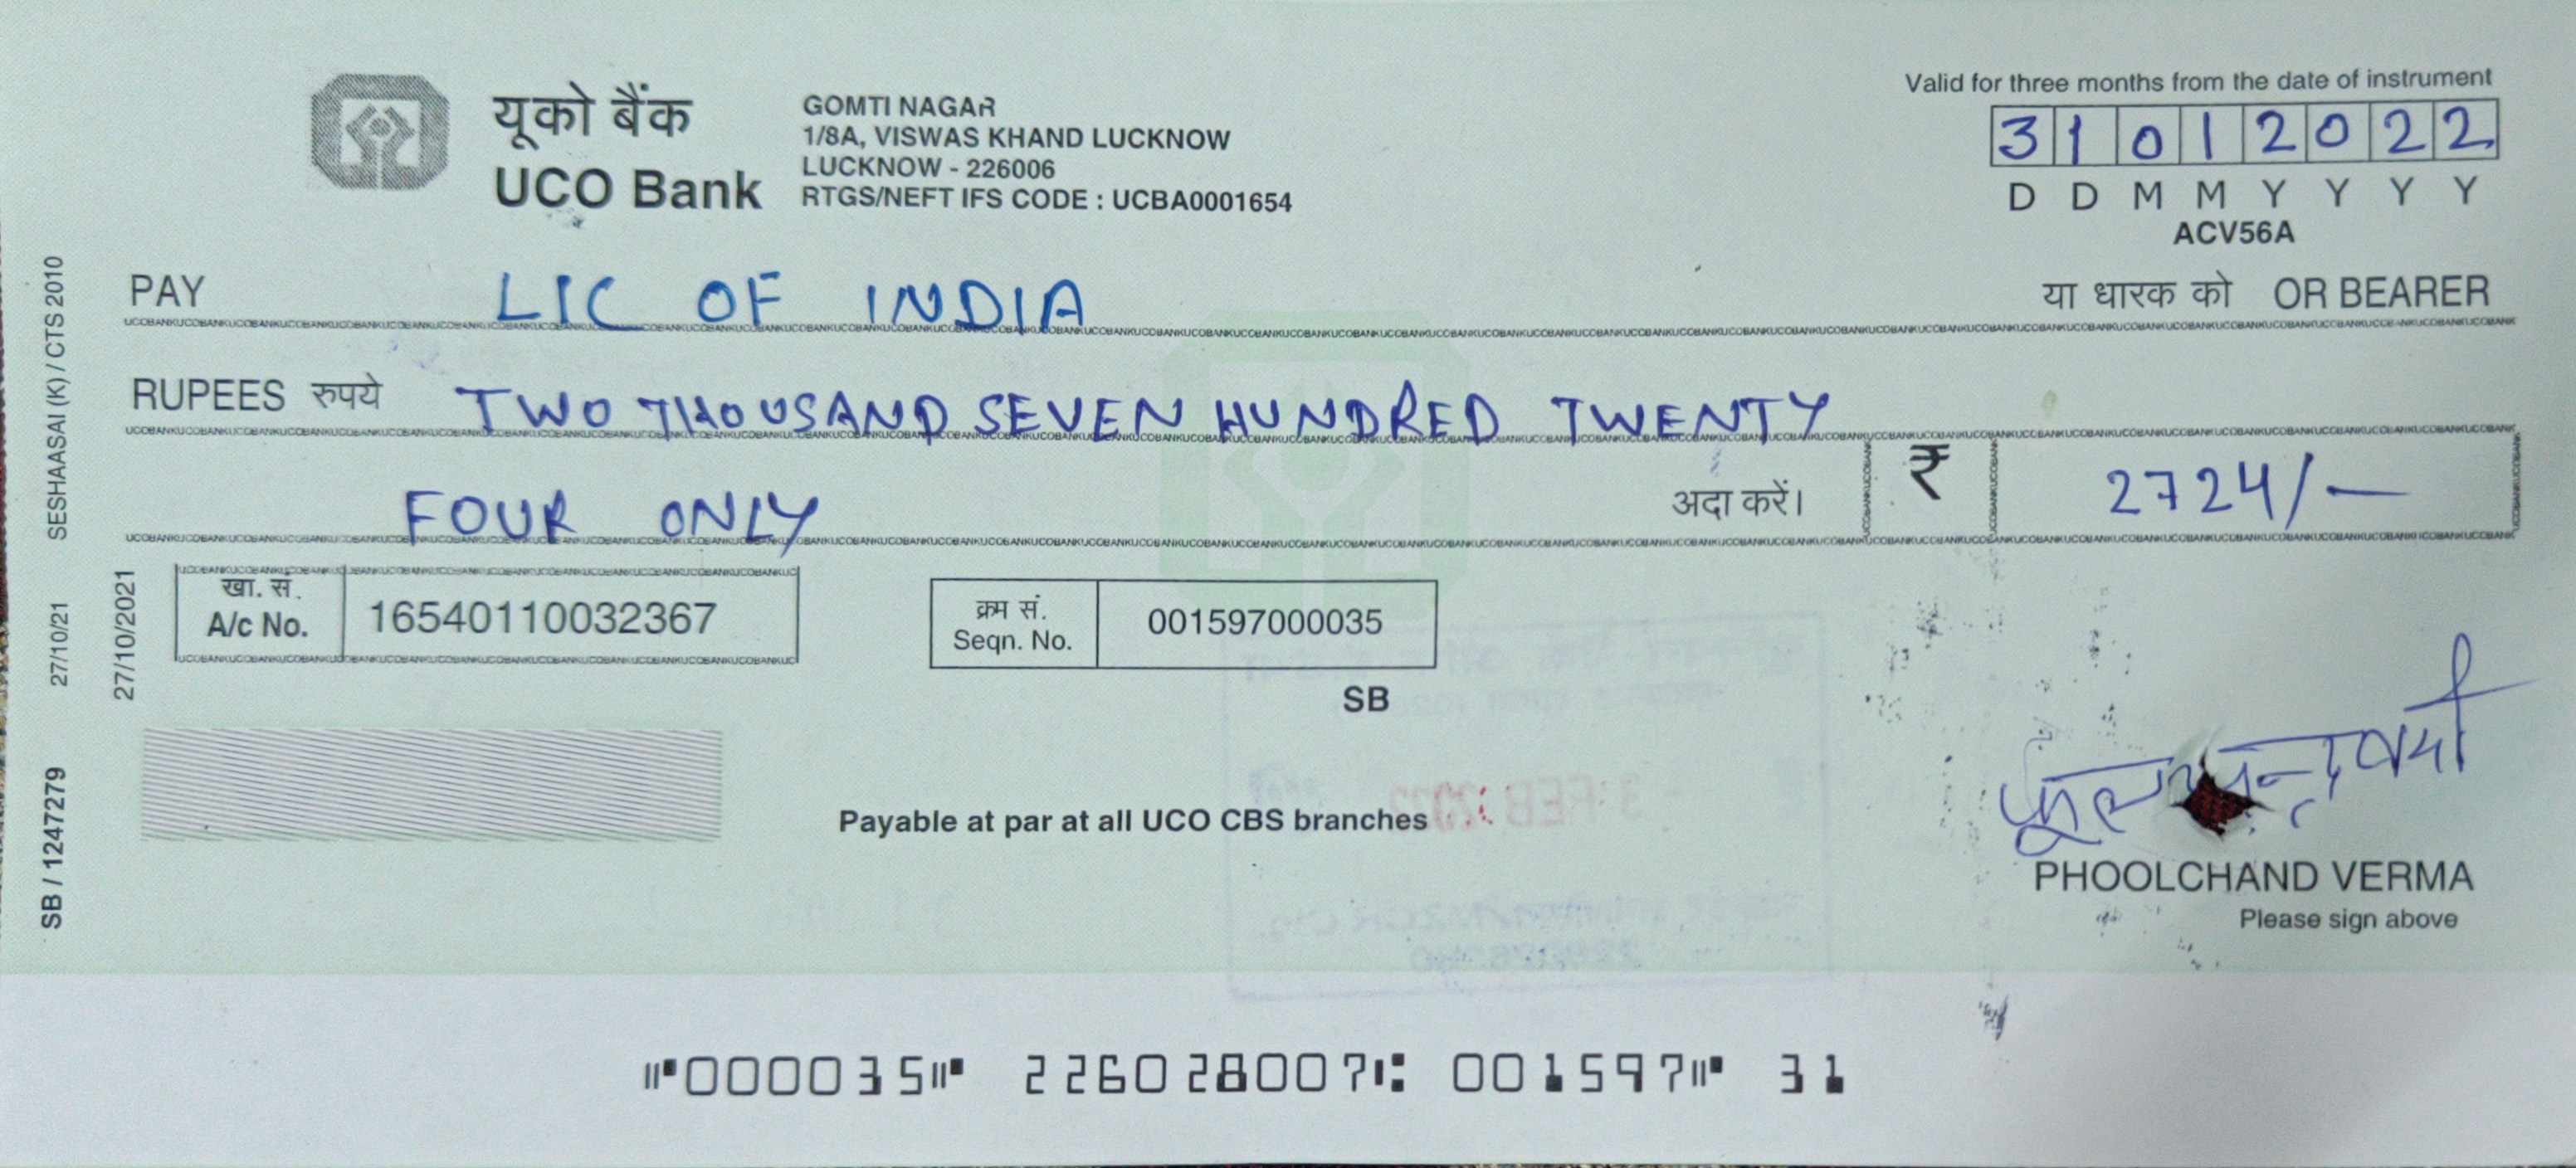 यूको बैंक
UCO Bank
GOMTI NAGAR
1/8A, VISWAS KHAND LUCKNOW
LUCKNOW - 226006
RTGS/NEFT IFS CODE : UCBA0001654
Valid for three months from the date of instrument
3 1 0 1 2 0 2 2
D D M M Y Y Y Y
ACV56A
PAY LIC OF INDIA या धारक को OR BEARER
RUPEES रुपये TWO THOUSAND SEVEN HUNDRED TWENTY
FOUR ONLY अदा करें। ₹ 2724/-
खा. सं.
A/c No. 16540110032367
क्रम सं.
Seqn. No. 001597000035
SB
Payable at par at all UCO CBS branches
- 3 FEB 2022
फूलचन्द्र वर्मा
PHOOLCHAND VERMA
Please sign above
SESHAASAI (K) / CTS 2010
27/10/21
SB / 1247279
27/10/2021
⑈000035⑈ 226028007⑆ 001597⑈ 31